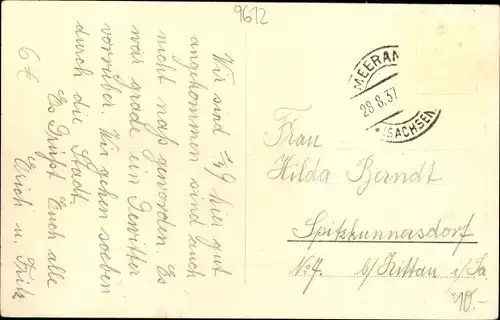 9612
Wir sind 1/49 hier gut
angekommen sind auch
nicht naß geworden. Es
war grade ein Gewitter
vorrüber. Wir gehen soeben
durch die Stadt.
Es Grüßt Euch alle
Erich u. Fritz
6€
MEERAN
28.8.37
*(SACHSEN
Frau
Hilda Berndt
Spitzkunnersdorf
No 7. b/Zittau i/Sa
10.-